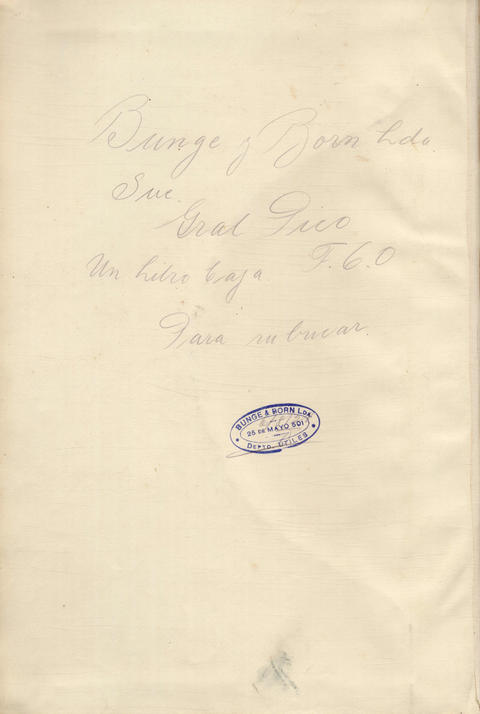 Bunge y Born Lda
Suc.
Gral Pico
Un Libro Caja F.C.O
Para rubricar.
BUNGE & BORN LDA.
25 DE MAYO 501
DEPTO. ÚTILES